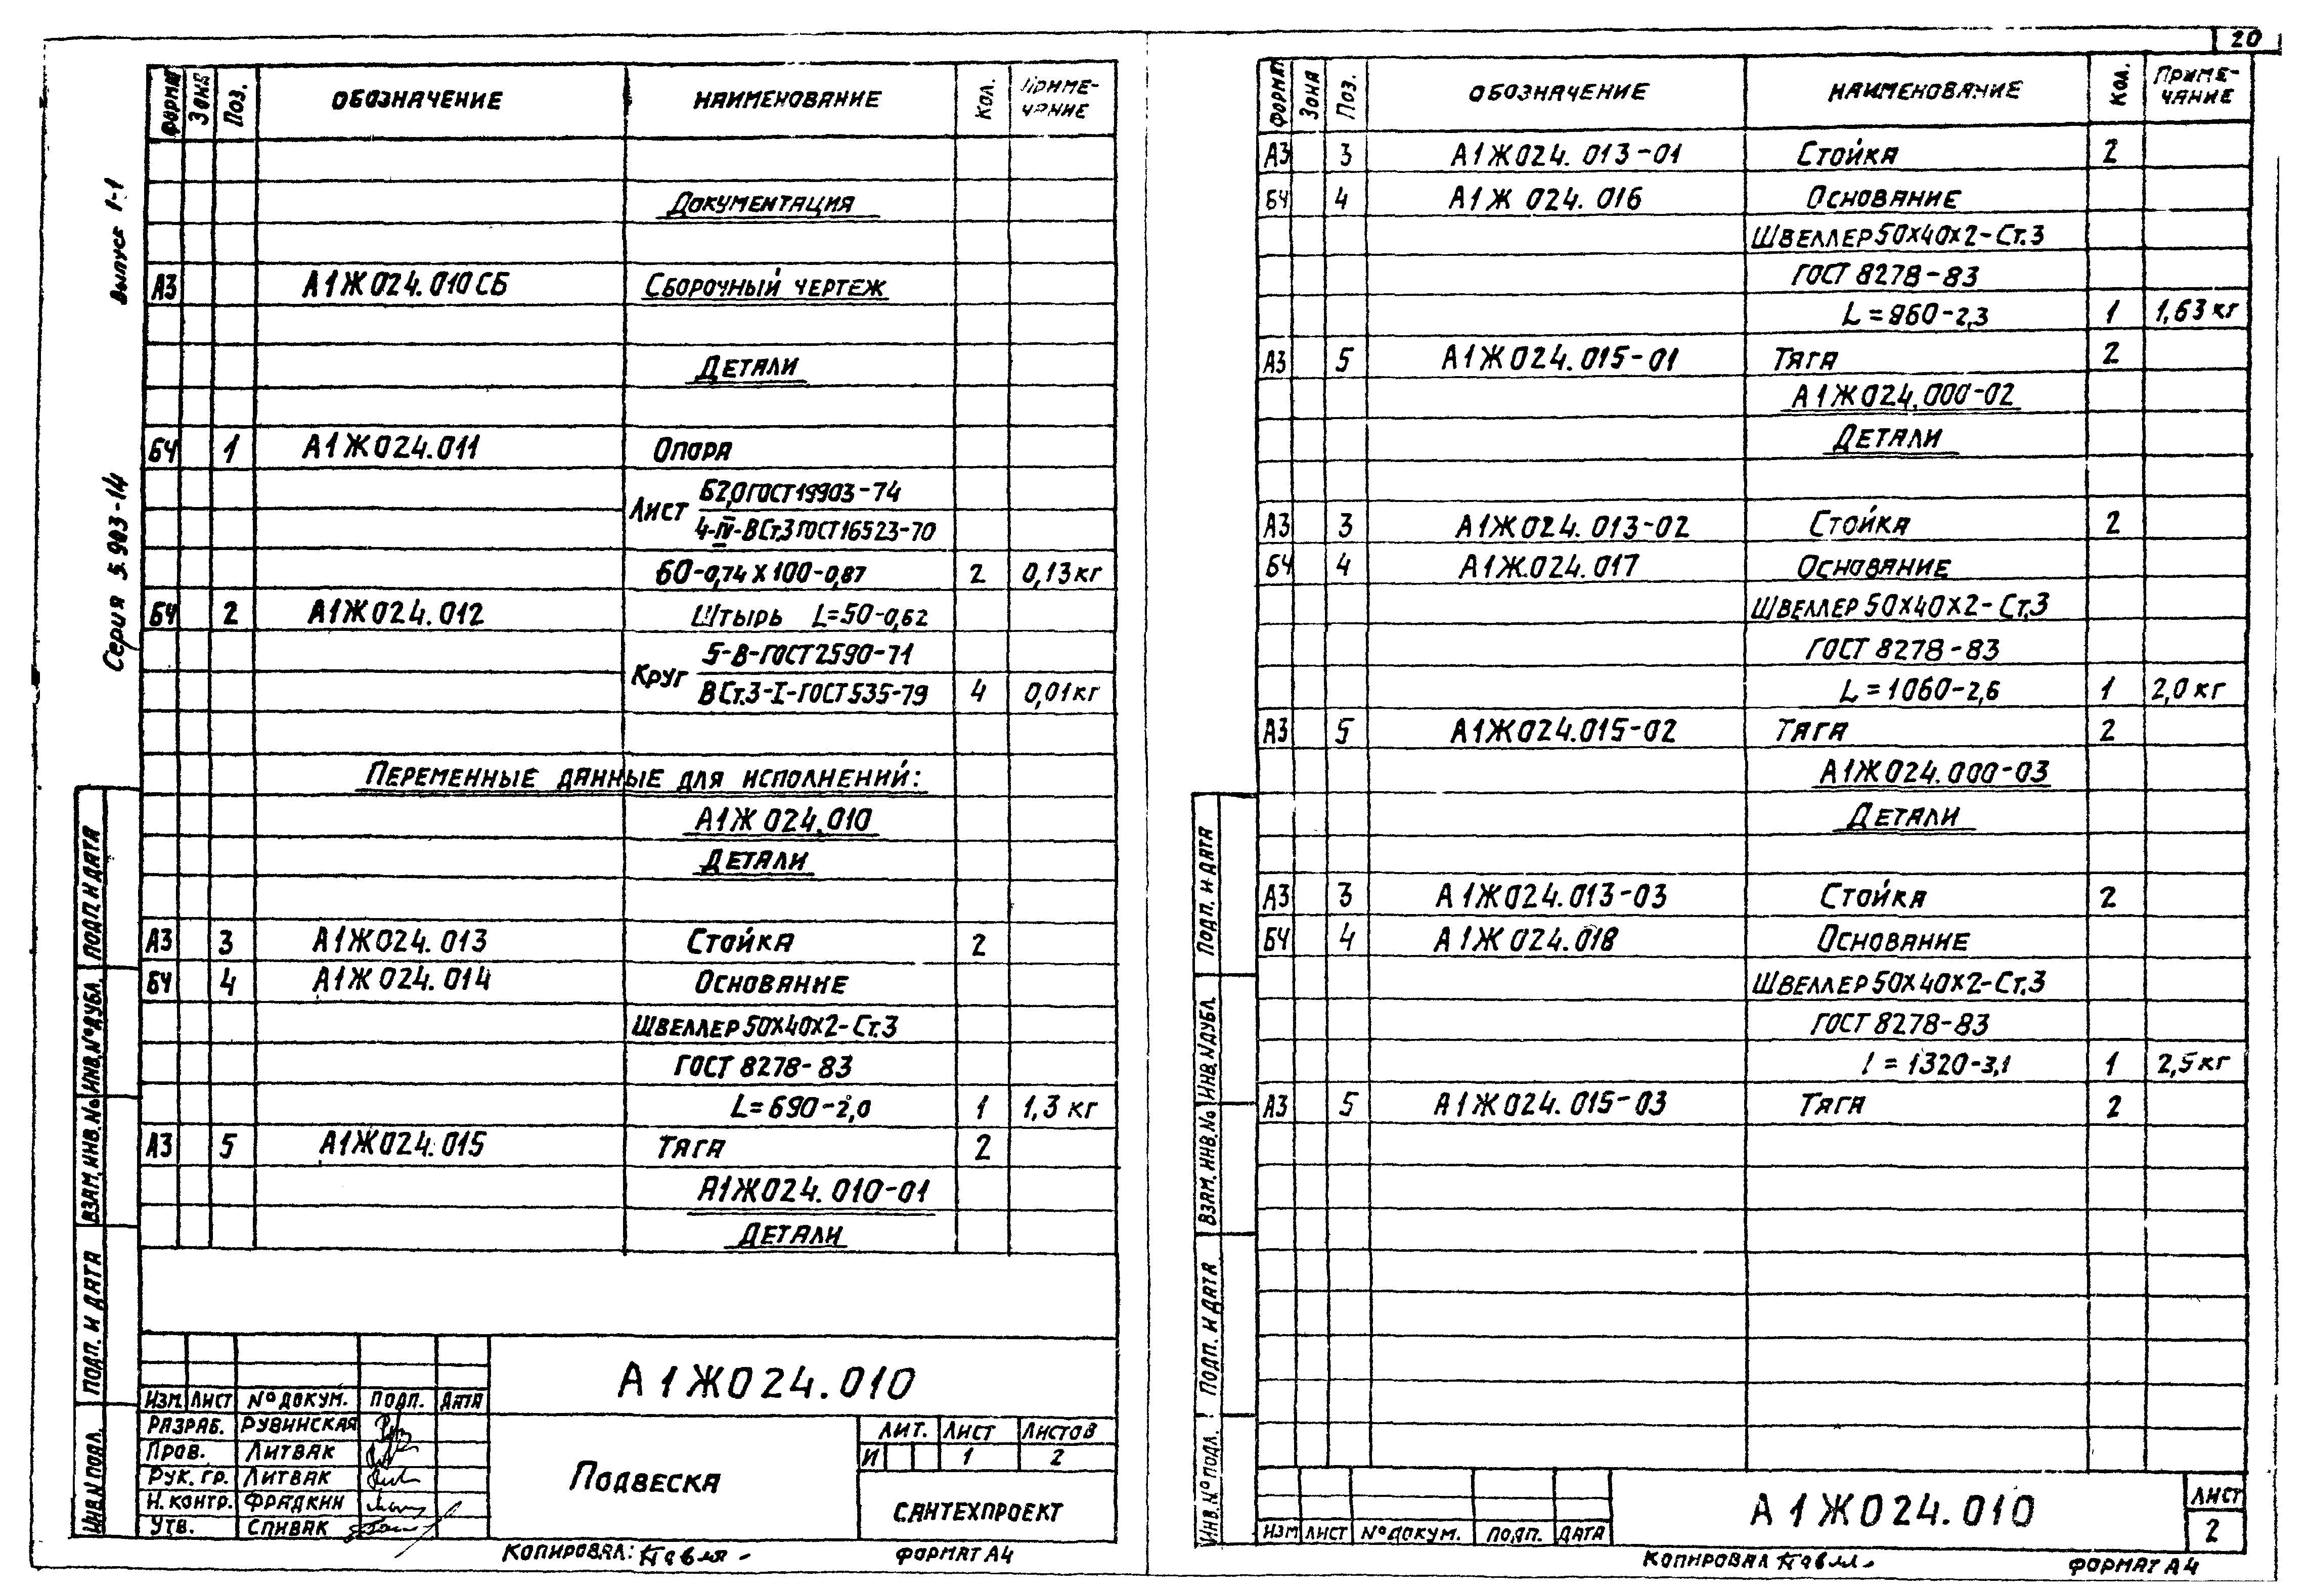 20
Выпуск 1-1
Серия 5.903-14
Формат Зона Поз. Обозначение Наименование Кол. Примечание
Документация
А3 А1Ж024.010СБ Сборочный чертеж
Детали
БЧ 1 А1Ж024.011 Опора
Лист Б2,0 ГОСТ 19903-74
4-IV-ВСт.3 ГОСТ 16523-70
60-0,74 х 100-0,87 2 0,13 кг
БЧ 2 А1Ж024.012 Штырь L=50-0,62
Круг 5-В-ГОСТ 2590-71
ВСт.3-I-ГОСТ 535-79 4 0,01 кг
Переменные данные для исполнений:
А1Ж024.010
Детали
А3 3 А1Ж024.013 Стойка 2
БЧ 4 А1Ж024.014 Основание
Швеллер 50х40х2-Ст.3
ГОСТ 8278-83
L=690-2,0 1 1,3 кг
А3 5 А1Ж024.015 Тяга 2
А1Ж024.010-01
Детали
Подп. и дата
Инв.№дубл.
Взам.инв.№
Подп. и дата
Инв.N подл.
А1Ж024.010
Изм. Лист №докум. Подп. Дата
Разраб. Рувинская
Пров. Литвак
Рук. гр. Литвак
Н. контр. Фрадкин
Утв. Спивак
Подвеска
Лит. Лист Листов
И 1 2
Сантехпроект
Копировал:
Формат А4
Формат Зона Поз. Обозначение Наименование Кол. Примечание
А3 3 А1Ж024.013-01 Стойка 2
БЧ 4 А1Ж 024.016 Основание
Швеллер 50х40х2-Ст.3
ГОСТ 8278-83
L=960-2,3 1 1,63 кг
А3 5 А1Ж024.015-01 Тяга 2
А1Ж024.000-02
Детали
А3 3 А1Ж024.013-02 Стойка 2
БЧ 4 А1Ж.024.017 Основание
Швеллер 50х40х2-Ст.3
ГОСТ 8278-83
L=1060-2,6 1 2,0 кг
А3 5 А1Ж024.015-02 Тяга 2
А1Ж024.000-03
Детали
А3 3 А1Ж024.013-03 Стойка 2
БЧ 4 А1Ж024.018 Основание
Швеллер 50х40х2-Ст.3
ГОСТ 8278-83
l=1320-3,1 1 2,5 кг
А3 5 А1Ж024.015-03 Тяга 2
Подп. и дата
Инв.Nдубл.
Взам.инв.№
Подп. и дата
Инв.№подл.
Изм Лист №докум. Подп. Дата
А1Ж024.010
Лист
2
Копировал
Формат А4